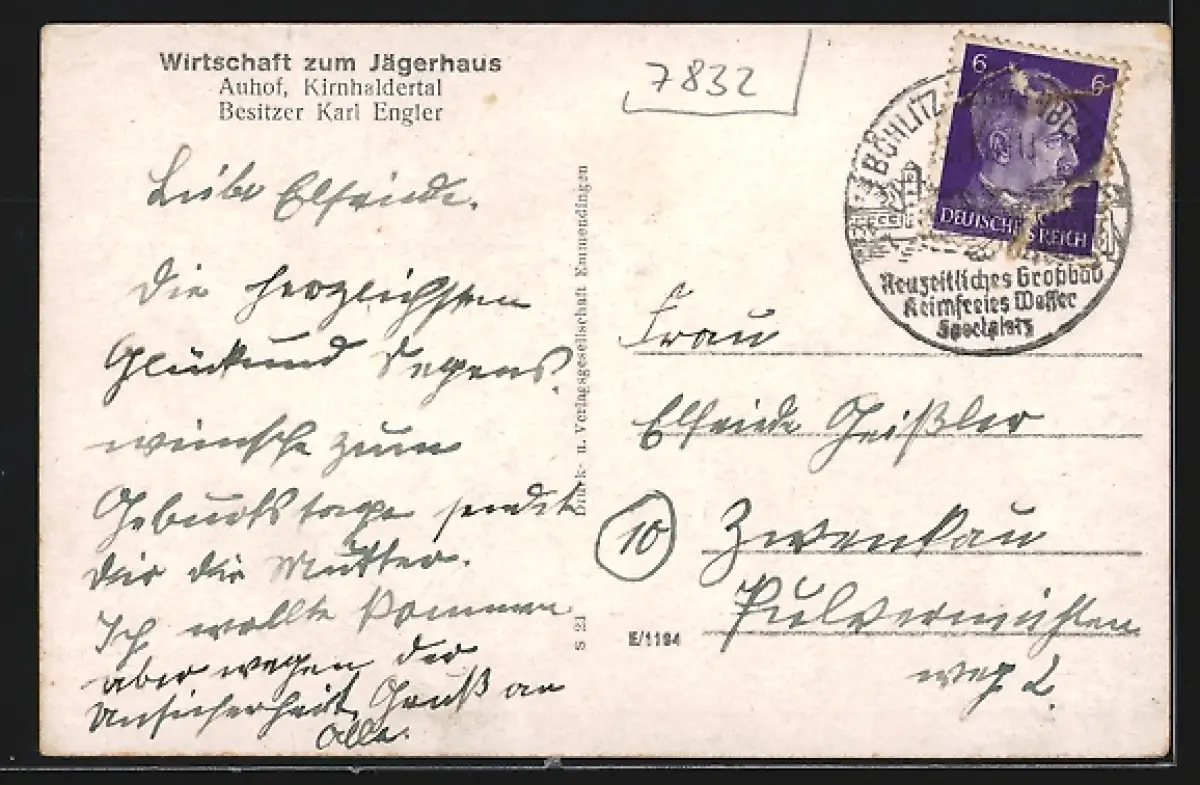 Wirtschaft zum Jägerhaus
Auhof, Kirnhaldertal
Besitzer Karl Engler
7832
6 6
DEUTSCHES REICH
BÖHLITZ
Neuzeitliches Großbad
Keimfreies Wasser
Sportplatz
Liebe Elfriede.
Die herzlichsten
Glück und Segens
wünsche zum
Geburtstage sendet
dir die Mutter.
Ich wollte kommen
aber wegen der
Unsicherheit. Gruß an
alle.
Druck- u. Verlagsgesellschaft Emmendingen
S 21
E/1194
Frau
Elfriede Geißler
10
Zwenkau
Pulvermühlen
weg 2.